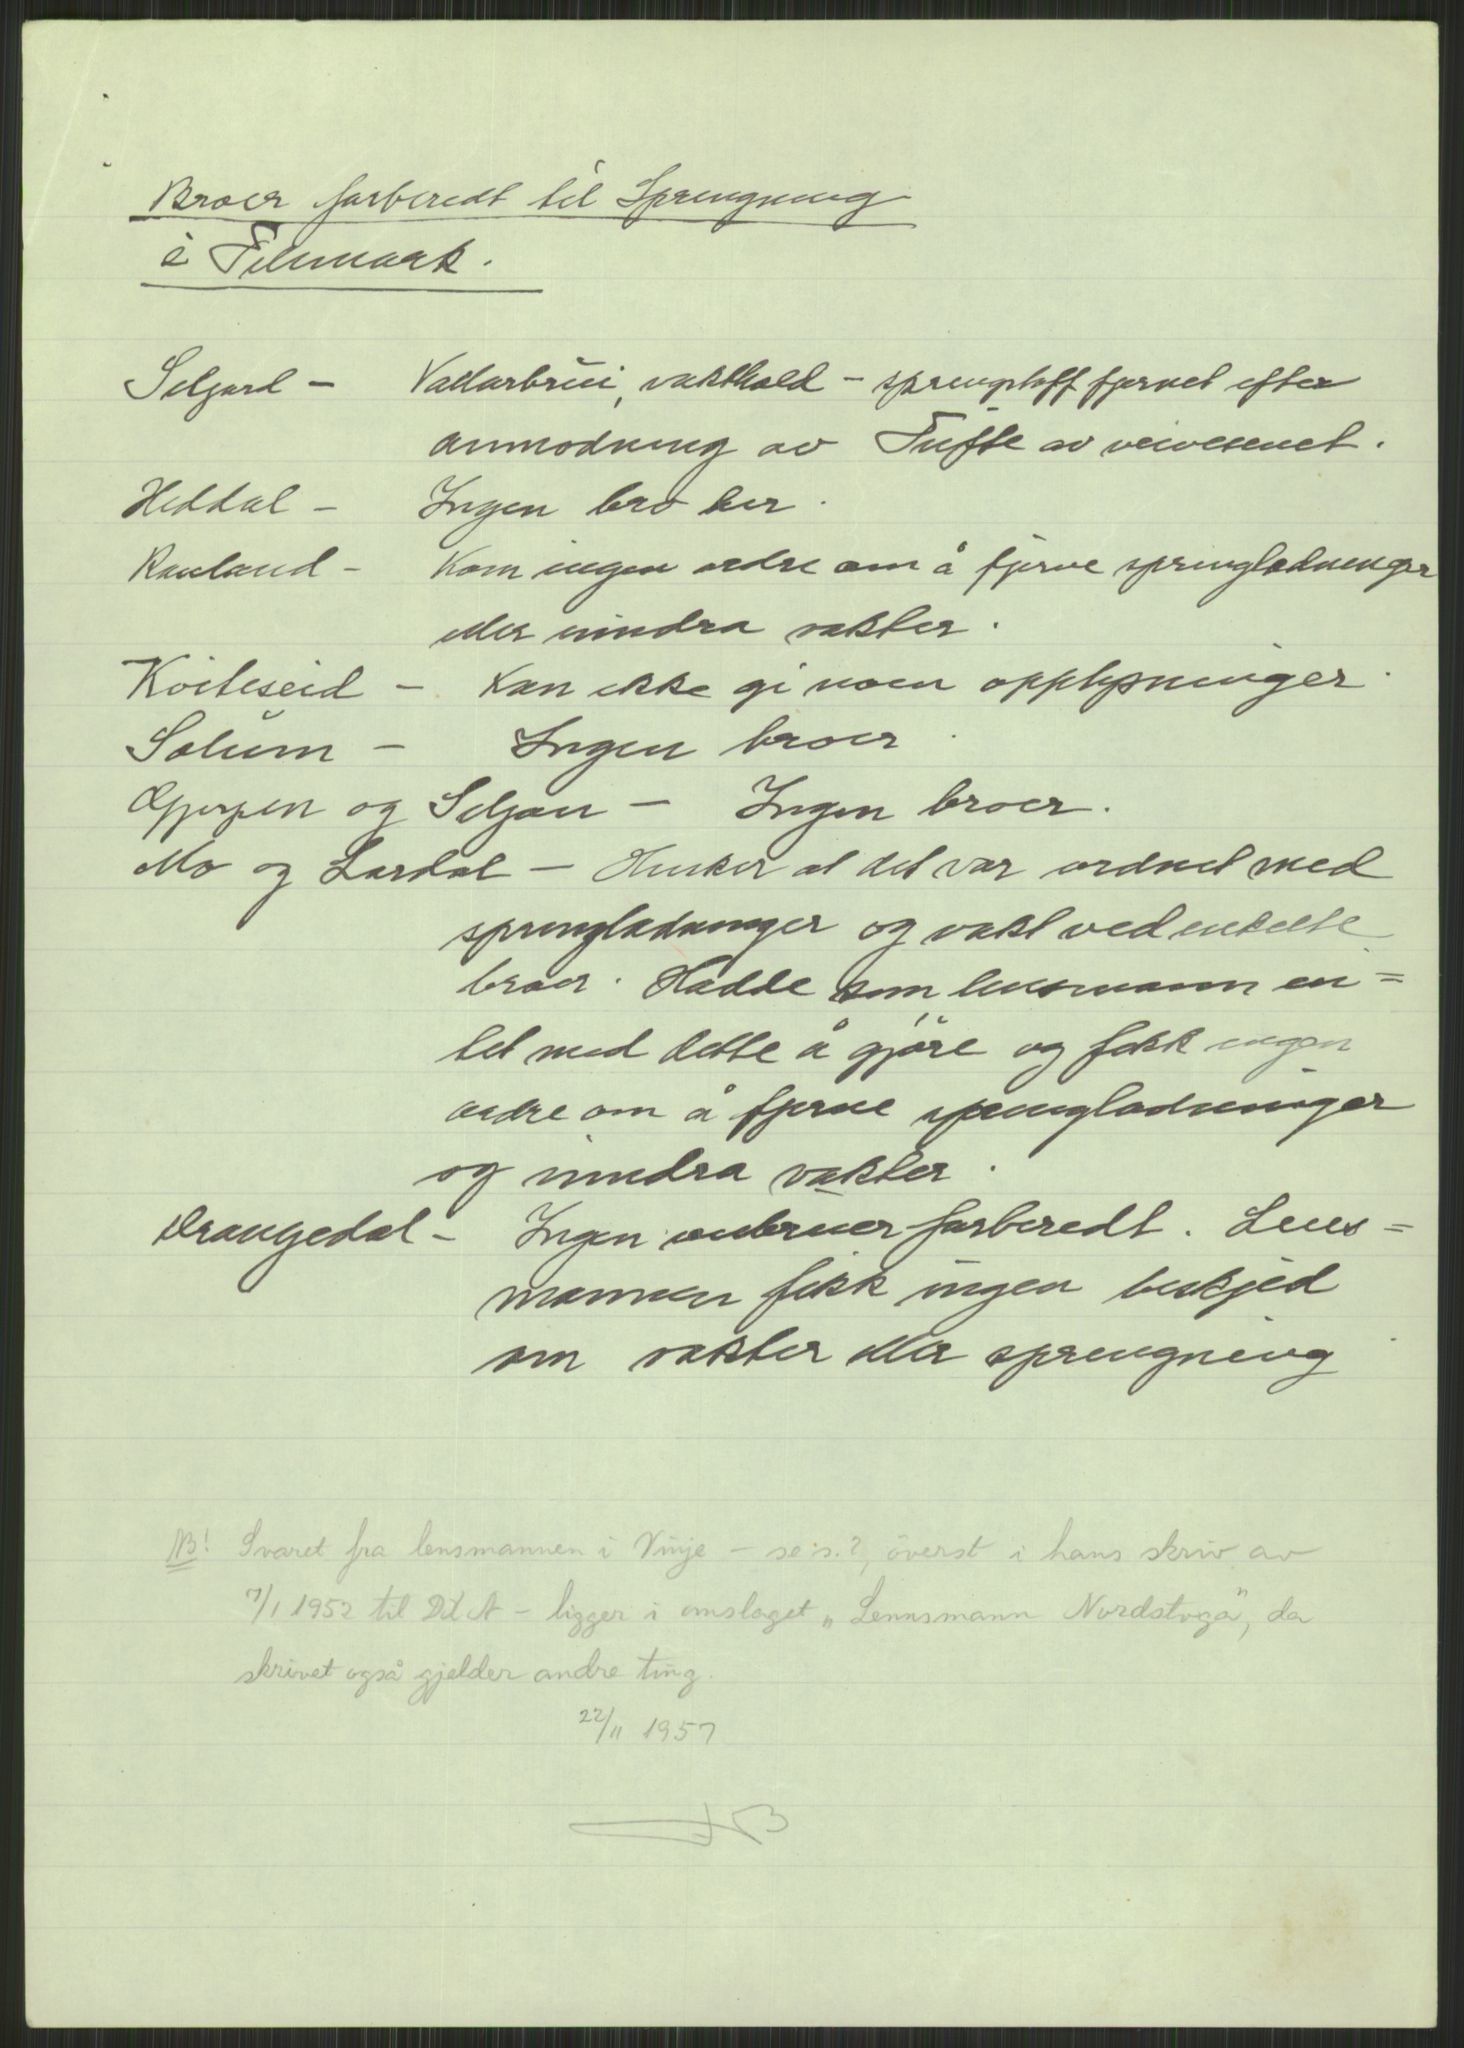 Broer forberedt til Sprengning
i Telemark.
Seljord - Vallarbrui, vakthold - sprengstoff fjernet efter
anmodning av Tufte av veivesenet.
Heddal - Ingen bro her.
Rauland - Kom ingen ordre om å fjerne sprengladninger
eller inndra vakter.
Kviteseid - Kan ikke gi noen opplysninger.
Solum - Ingen broer.
Gjerpen og Siljan - Ingen broer.
Mo og Lårdal - Husker at det var ordnet med
sprengladninger og vakt ved enkelte
broer. Hadde som lensmann in=
tet med dette å gjöre og fikk ingen
ordre om å fjerne sprengladninger
og inndra vakter.
Drangedal - Ingen bruer forberedt. Lens=
mannen fikk ingen beskjed
om vakter eller sprengning
NB! Svaret fra lensmannen i Vinje - se s. 2, överst i hans skriv av
7/1 1952 til - ligger i omslaget „Lennsmann Nordstoga", da
skrivet også gjelder andre ting.
22/11 1957